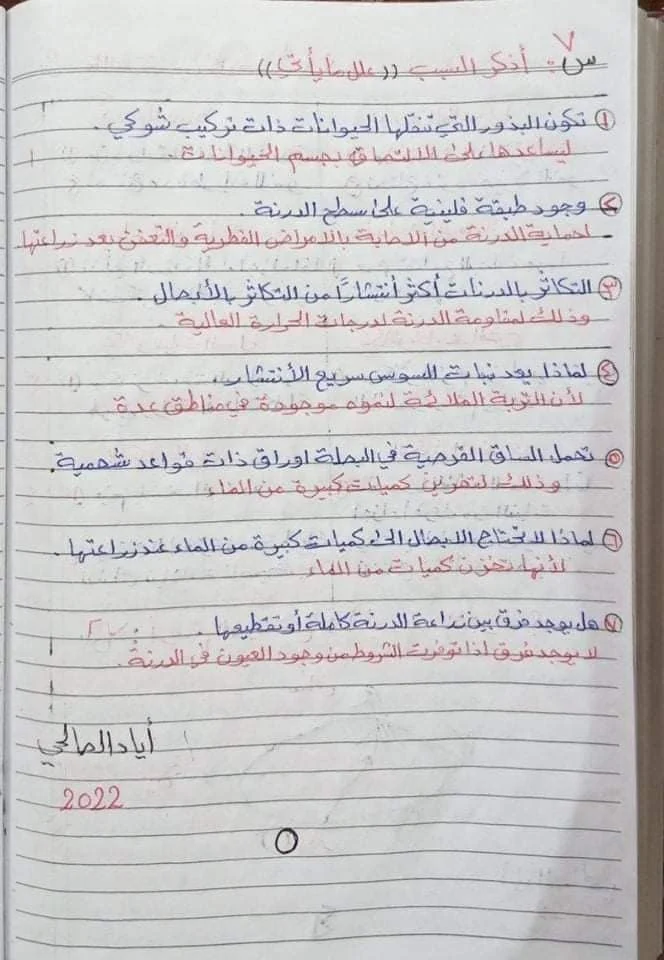 ٧
س: أذكر السبب ((علل ما يأتي))
① تكون البذور التي تنقلها الحيوانات ذات تركيب شوكي.
ليساعدها على الالتصاق بجسم الحيوانات.
② وجود طبقة فلينية على سطح الدرنة.
لحماية الدرنة من الاصابة بالامراض الفطرية والتعفن بعد زراعتها.
③ التكاثر بالدرنات أكثر أنتشاراً من التكاثر بالأبصال.
وذلك لمقاومة الدرنة لدرجات الحرارة العالية
④ لماذا يعد نبات السوس سريع الأنتشار.
لأن التربة الملائمة لنموه موجودة في مناطق عدة
⑤ تحمل الساق القرصية في البصلة اوراق ذات قواعد شحمية.
وذلك لتخزين كميات كبيرة من الماء
⑥ لماذا لا تحتاج الابصال الى كميات كبيرة من الماء عند زراعتها.
لأنها تخزن كميات من الماء
⑦ هل يوجد فرق بين زراعة الدرنة كاملة أو تقطيعها.
لا يوجد فرق اذا توفرت الشروط من وجود العيون في الدرنة.
أياد الصالحي
2022